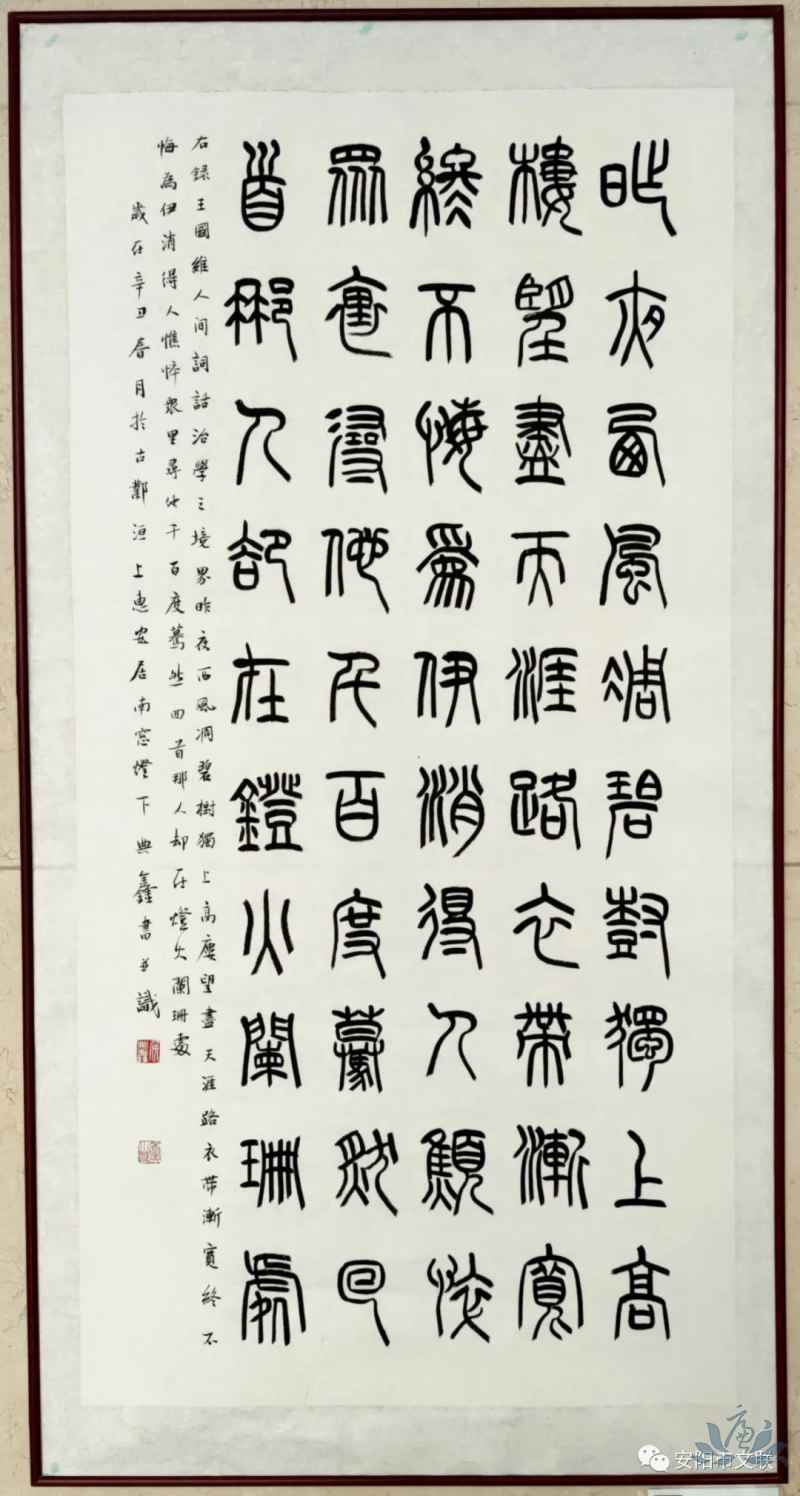 昨夜西風凋碧樹獨上高
樓望盡天涯路衣帶漸寬
終不悔爲伊消得人顦悴
眾裏尋他千百度驀然回
首那人卻在鐙火闌珊處
右録王國維人间詞話治學三境界昨夜西風凋碧樹獨上高樓望盡天涯路衣帶漸寬終不
悔為伊消得人憔悴衆里尋他千百度驀然回首那人却在燈火闌珊處
歲在辛丑春月於古鄴洹上惠安居南窓燈下典鑫書並識
安阳市文联